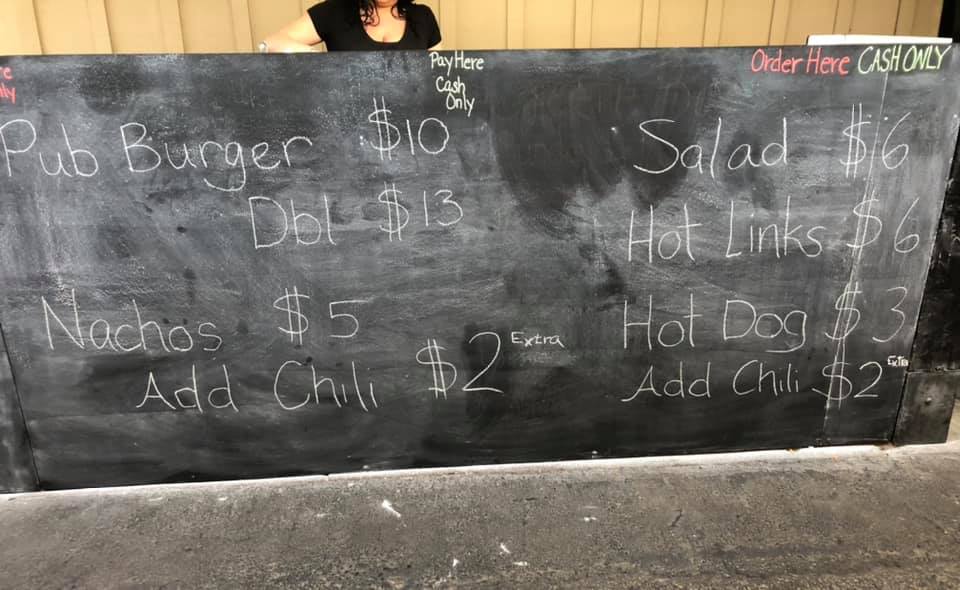 Pay Here
Cash
Only
Order Here CASH ONLY
Pub Burger $10
Dbl $13
Nachos $5
Add Chili $2 Extra
Salad $6
Hot Links $6
Hot Dog $3
Add Chili $2 Extra